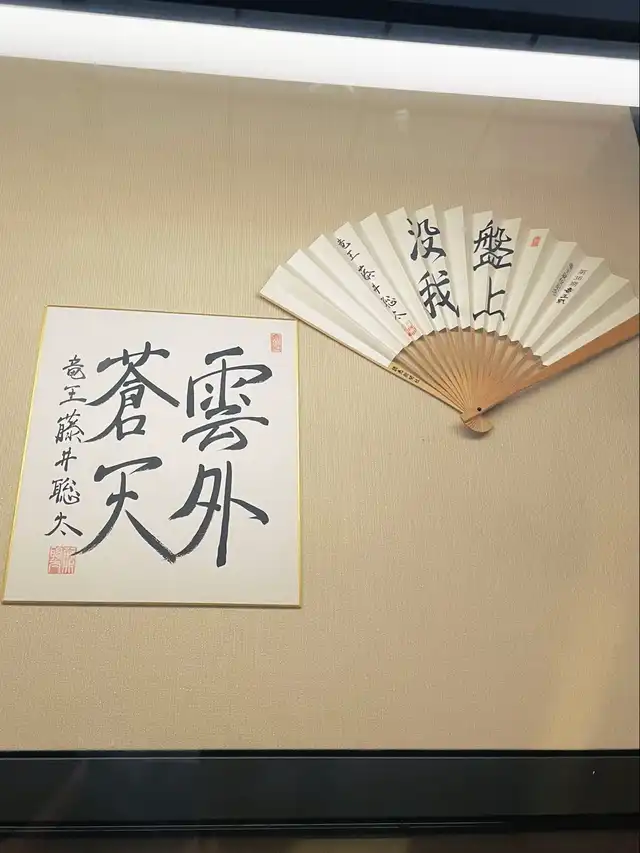 雲外
蒼天
竜王 藤井聡太
盤上
没我
竜王 藤井聡太